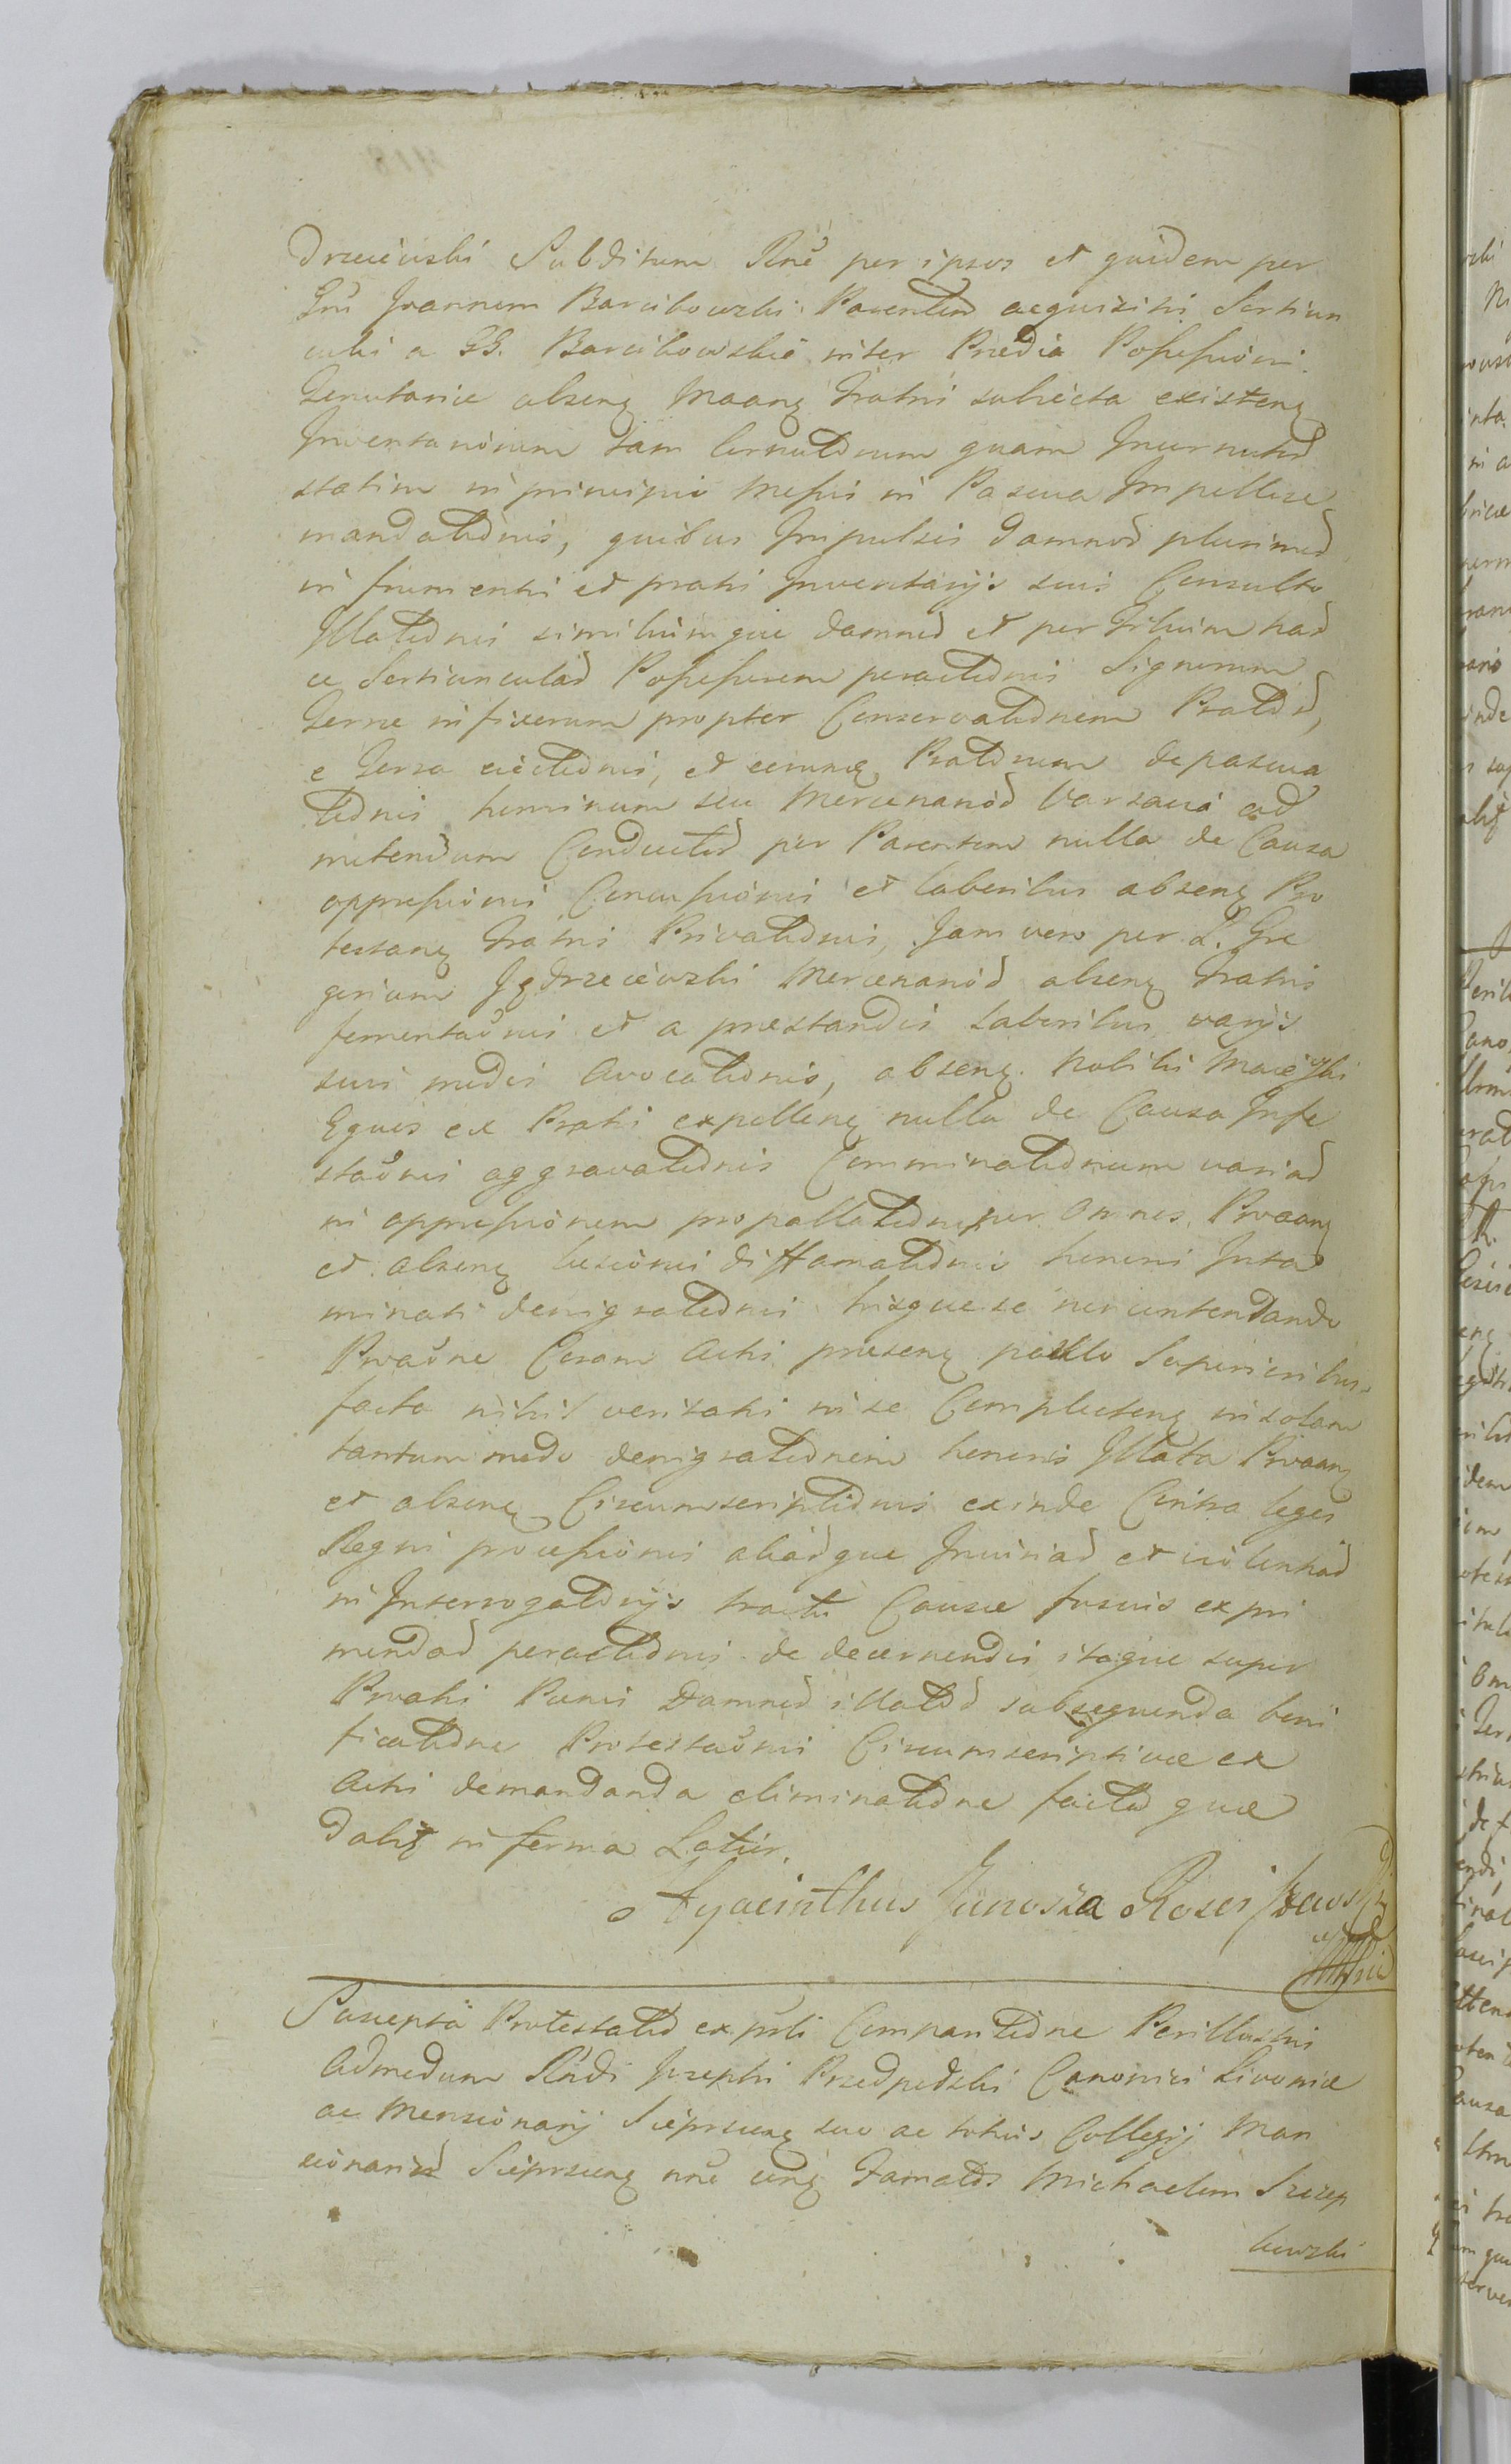 Drzeiewski Subditum Rnē per ipsos et quidem per
Gnū Joannem Barcikowski Parentem acquisiti Sortiun
culi a GG. Barcikowskie inter Prædia Possessioni
Tenutariæ absenq Maanq Fratri subiecta existenq
Inventariorum tam Cornutorum quam Incornutor
statim in principio Messis in Pascua Impellere
mandationis, quibus Impulsis damnor plurimor
in frumenti et prati Inventarijs suis Consulto
Illationis similiumque damnor et per Filium har
ce Sortiuncular Possessorem peractionis Signorum
Terræ infixorum propter Conservationem Prator,
e Terra eiectionis, et eorumq Pratorum depascua
tionis hominum seu Mercenarior Varsavia ad
metendum Conductor per Parentem nulla de Causa
oppressionis Concussionis et laboribus absenq Pro
testanq Fratris Privationis, Jam vero per G. Gre
gorium Jędrzeiewski Mercenarior absenq Fratris
fomentaōnis et a præstandis Laboribus varijs
suis modis Avocationis, absenq Nobilis
Equis ex Prati expellenq nulla de Causa Infe
staōnis aggravationis Comminationum variar
in oppressionem propallationis per omnes Proaanq
et absenq læsionis diffamationis honoris Inta
minati denigrationis hisquece non contentando
Proaōne Coram Actis præsenq paulo Superioribus
facta nihil veritatis in se Complectenq in solam
tantum modo denigrationem honoris Illata Proaanq
et absenq Circumscriptionis exinde Contra leges
Regni processionis aliarque Iniuriar et violentiar
in Interrogatorijs tractu Causæ fusius expri
mendar peractionis de decernendis itaque super
Proatis Pœnis Damnor illator subsequenda boni
ficatione Protestaōnis Circumscriptivæ ex
Actis demandanda eliminatione factis quæ
dabit in forma Latius.
Hyacinthus Junosza Rosciszewski
mpp
Suscepta Protestatio ex prti Comparitione Perillustris
Admodum Rndi Josephi Przedpełski Canonici Livoniæ
ac Mansionarij Sieprscenq suo ac totius Collegij Man
sionarior Sieprscenq nnē conq Famatos Michaelem Szczep
kowski